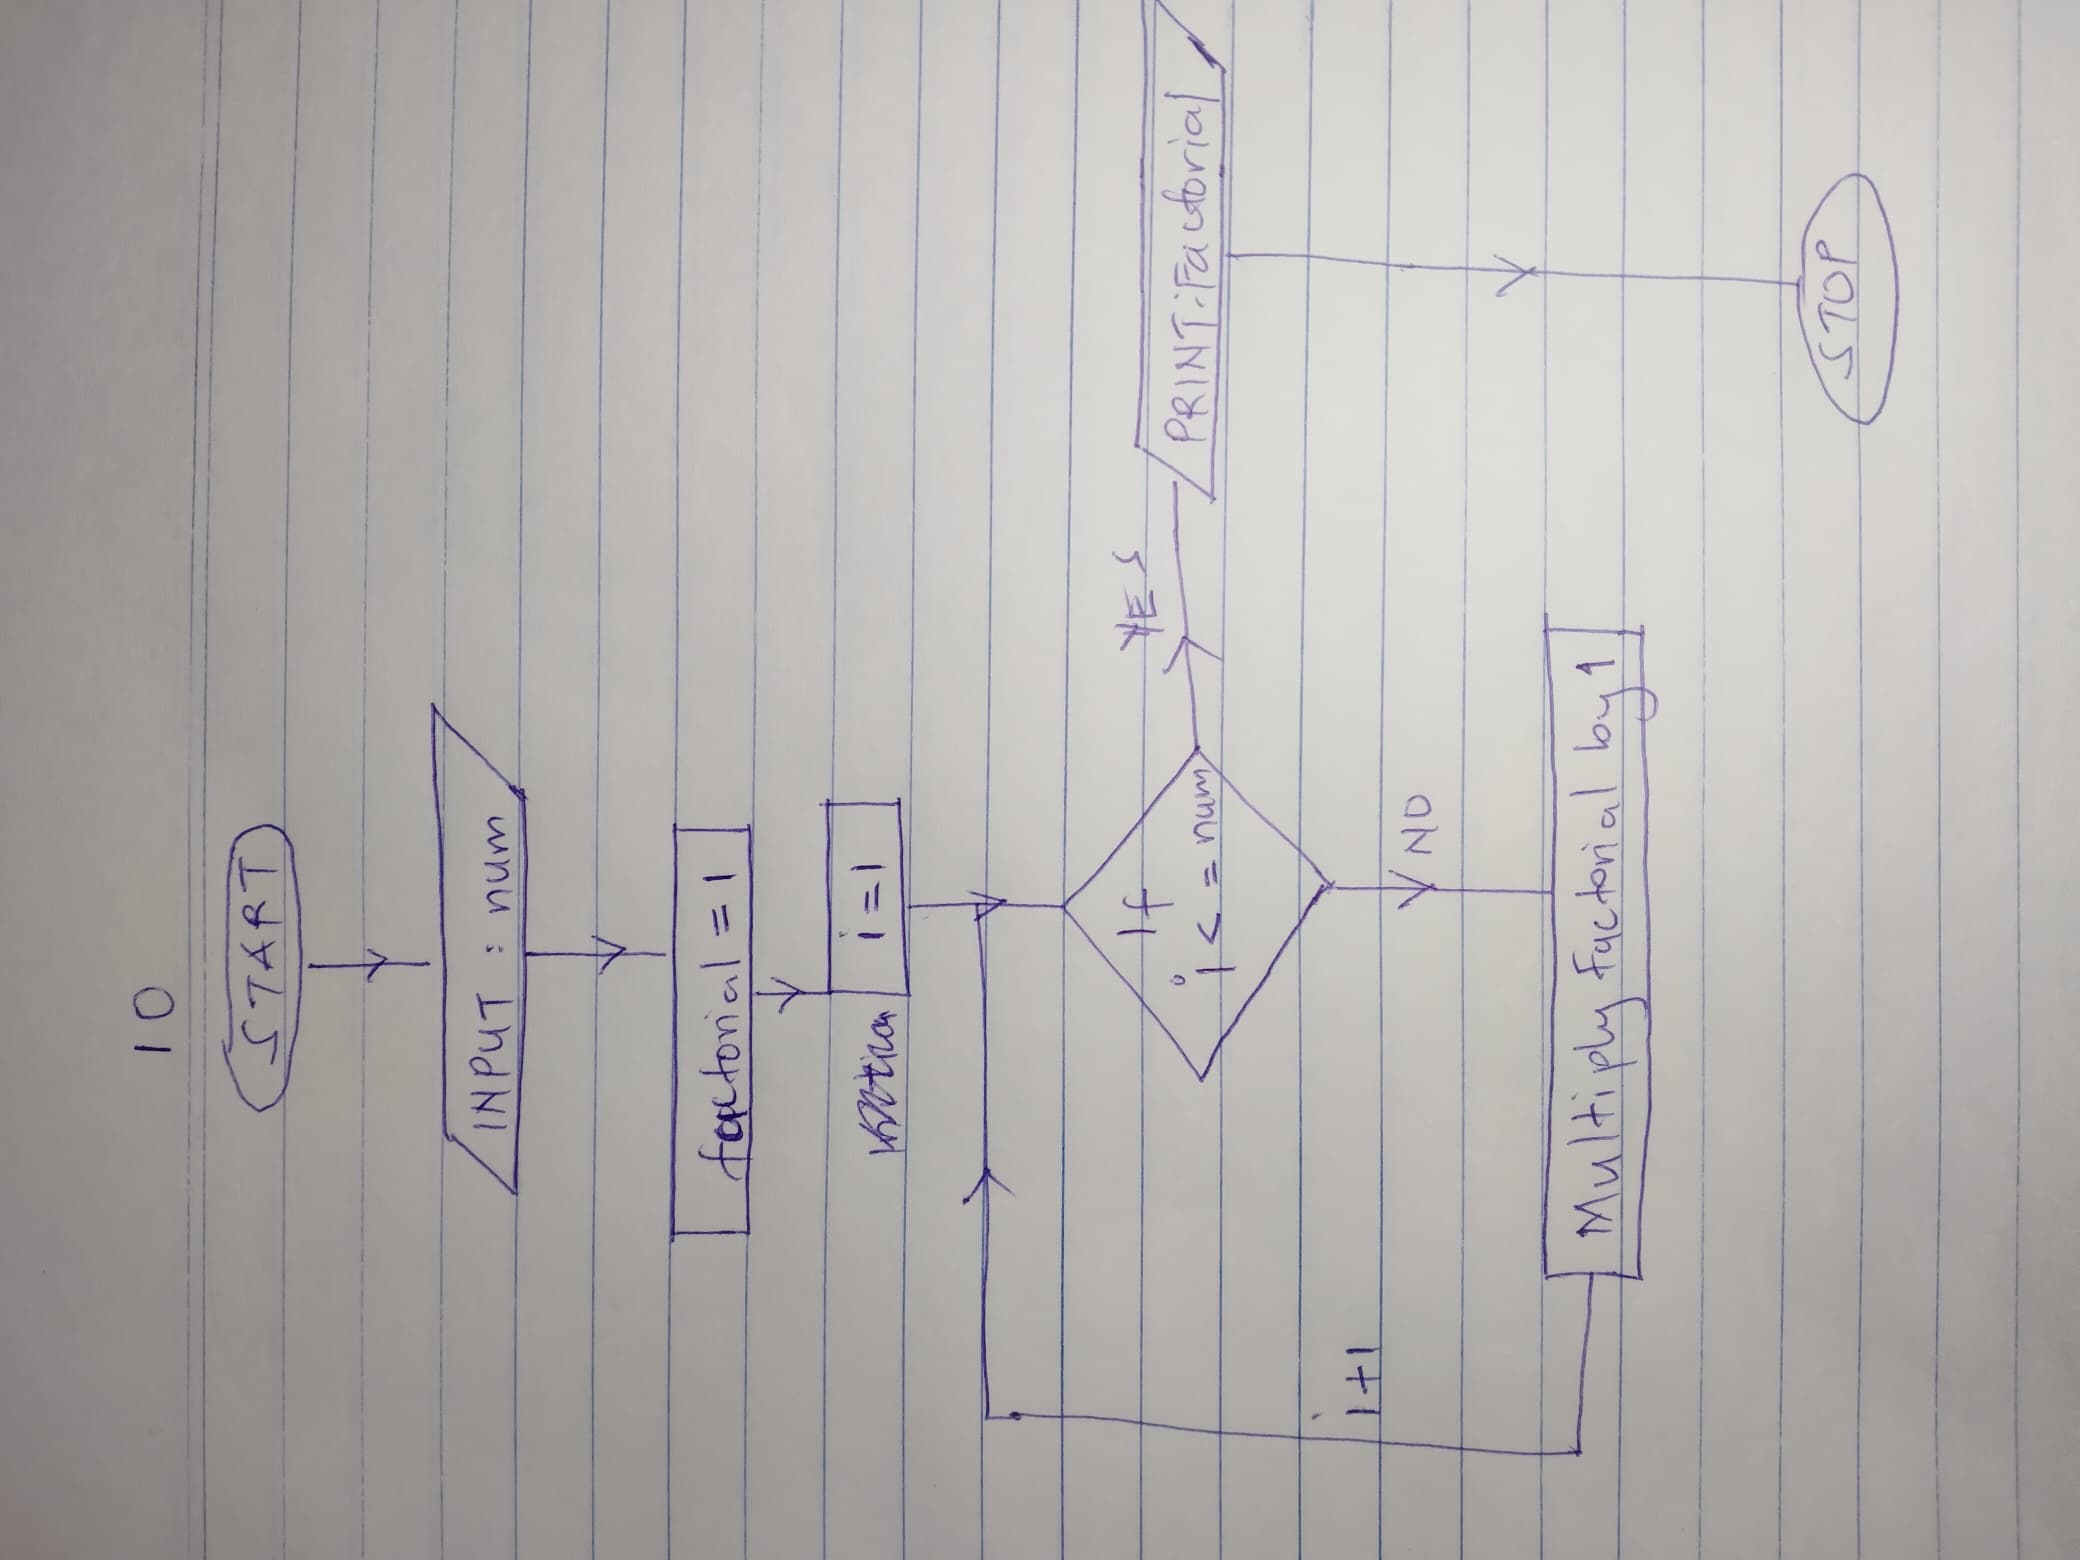 10
START
INPUT : num
factorial = 1
i=1
If
i < = num
YES
PRINT:Factorial
i+1
NO
Multiply Factorial by 1
STOP